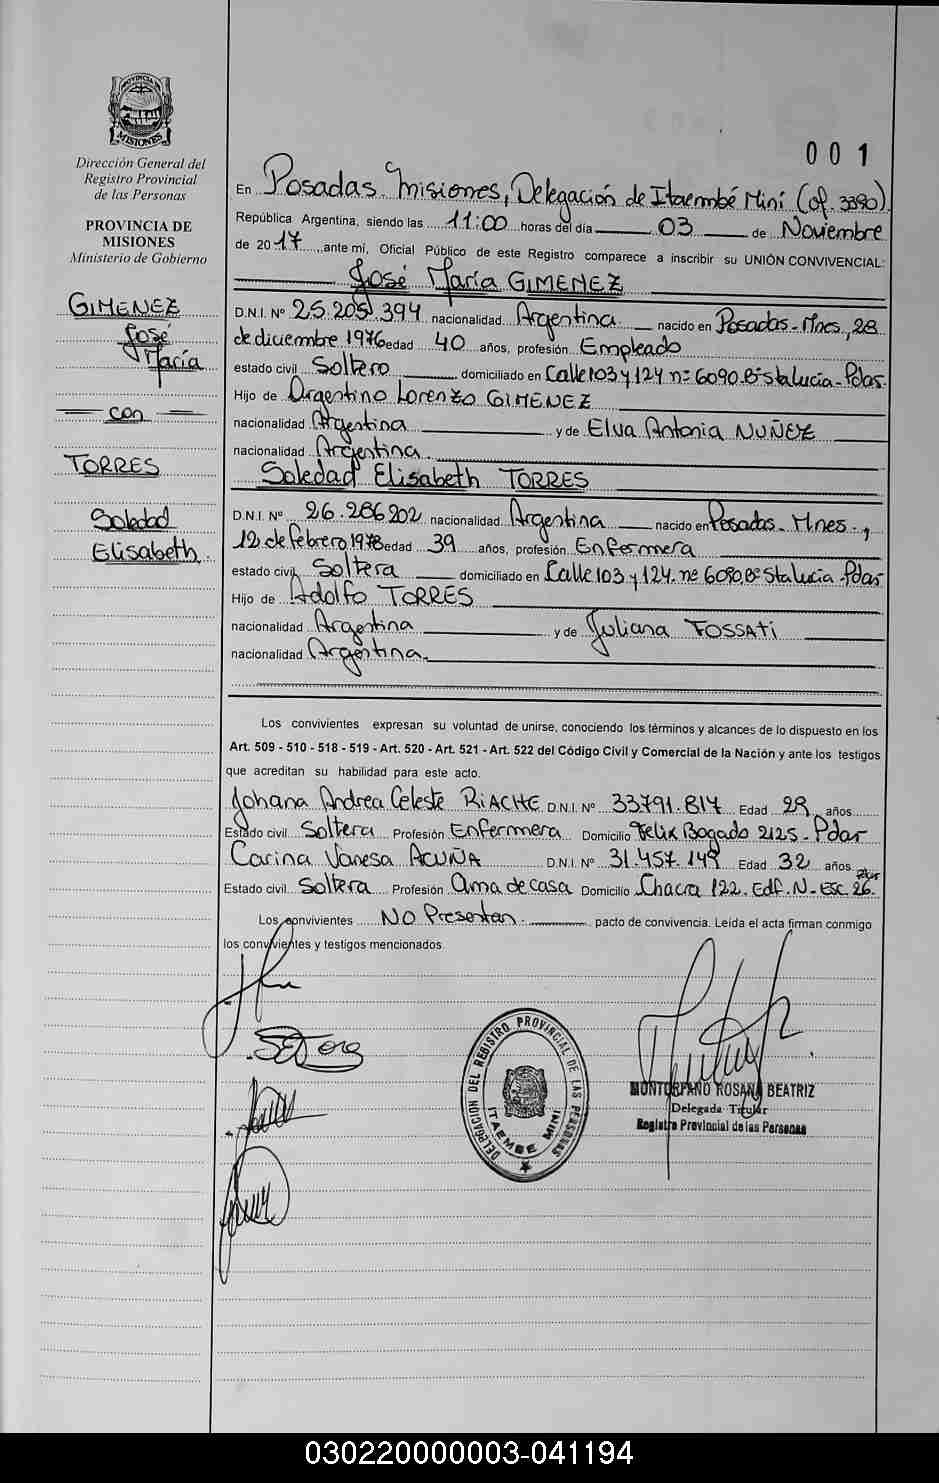 PROVINCIA DE MISIONES
Dirección General del
Registro Provincial
de las Personas
PROVINCIA DE
MISIONES
Ministerio de Gobierno
GIMENEZ
José
María
con
TORRES
Soledad
Elisabeth.
001
En Posadas Misiones, Delegación de Itaembé Mini (of. 3390)
República Argentina, siendo las 11:00 horas del día 03 de Noviembre
de 2017 ante mi, Oficial Público de este Registro comparece a inscribir su UNIÓN CONVIVENCIAL:
José María GIMENEZ
D.N.I. Nº 25.205.394 nacionalidad Argentina nacido en Posadas-Mnes, 28
de diciembre 1976 edad 40 años, profesión Empleado
estado civil Soltero domiciliado en Calle 103 y 124 nº 6090.Bº Sta lucía-Pdas.
Hijo de Argentino Lorenzo GIMENEZ
nacionalidad Argentina y de Elva Antonia NUÑEZ
nacionalidad Argentina.
Soledad Elisabeth TORRES
D.N.I. Nº 26.286202 nacionalidad Argentina nacido en Posadas-Mnes.,
12 de febrero 1978 edad 39 años, profesión Enfermera
estado civil Soltera domiciliado en Calle 103 y 124. nº 6090.Bº Sta lucía-Pdas
Hijo de Adolfo TORRES
nacionalidad Argentina y de Juliana FOSSATi
nacionalidad Argentina.
Los convivientes expresan su voluntad de unirse, conociendo los términos y alcances de lo dispuesto en los
Art. 509 - 510 - 518 - 519 - Art. 520 - Art. 521 - Art. 522 del Código Civil y Comercial de la Nación y ante los testigos
que acreditan su habilidad para este acto.
Johana Andrea Celeste RiACHE D.N.I. Nº 33791.817 Edad 29 años
Estado civil Soltera Profesión Enfermera Domicilio Felix Bogado 2125-Pdas
Carina Vanesa ACUÑA D.N.I. Nº 31.457.149 Edad 32 años
Estado civil Soltera Profesión Ama de casa Domicilio Chacra 122. Edf. N-Esc. 26.
Los convivientes No Presentan pacto de convivencia. Leída el acta firman conmigo
los convivientes y testigos mencionados.
DELEGACION DEL REGISTRO PROVINCIAL DE LAS PERSONAS
ITAEMBE MINI
MONTORFANO ROSANA BEATRIZ
Delegada Titular
Registro Provincial de las Personas
030220000003-041194